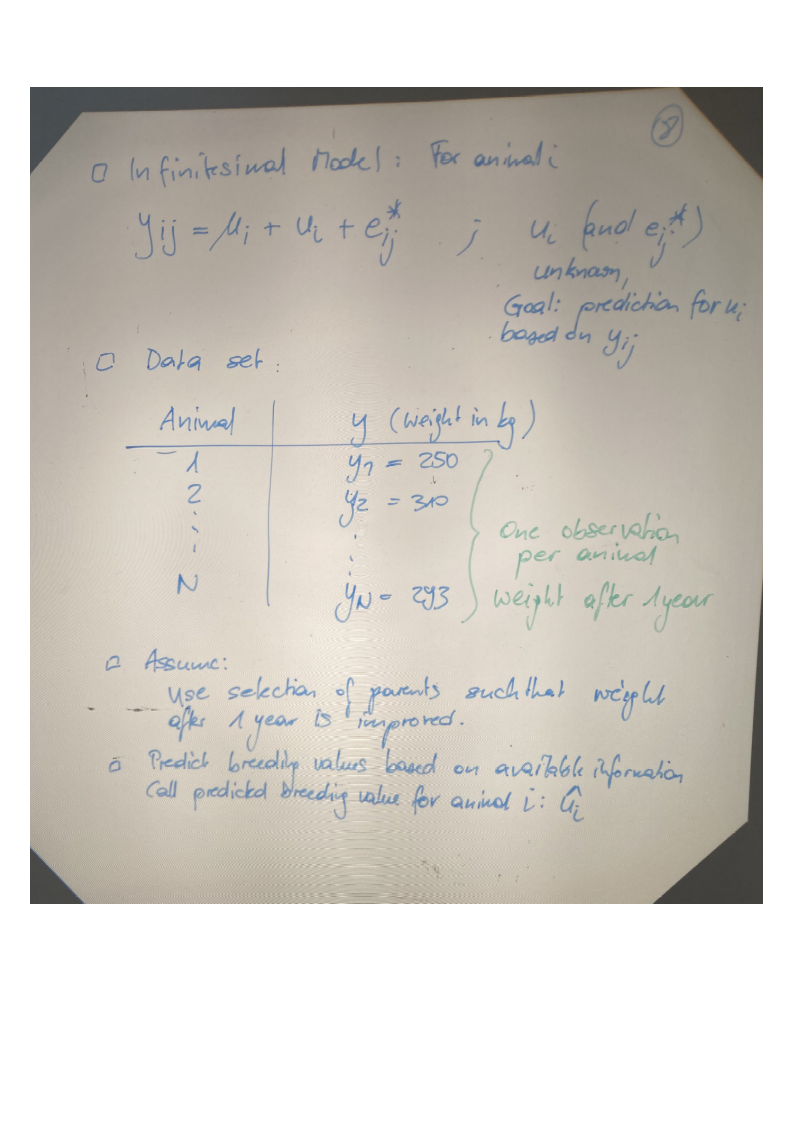 8
□ Infinitesimal Model: For animal i
yij = μi + ui + eij* ; ui (and eij*)
unknown,
Goal: prediction for ui
based on yij
□ Data set:
Animal | y (weight in kg)
1 | y1 = 250
2 | y2 = 310
⋮ | ⋮
N | yN = 293
One observation
per animal
weight after 1 year
□ Assume:
Use selection of parents such that weight
after 1 year is improved.
□ Predict breeding values based on available information
Call predicted breeding value for animal i: ûi